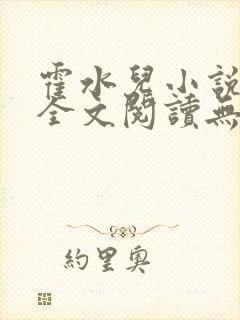 霍水兒小說
全文閱讀無
約里奧